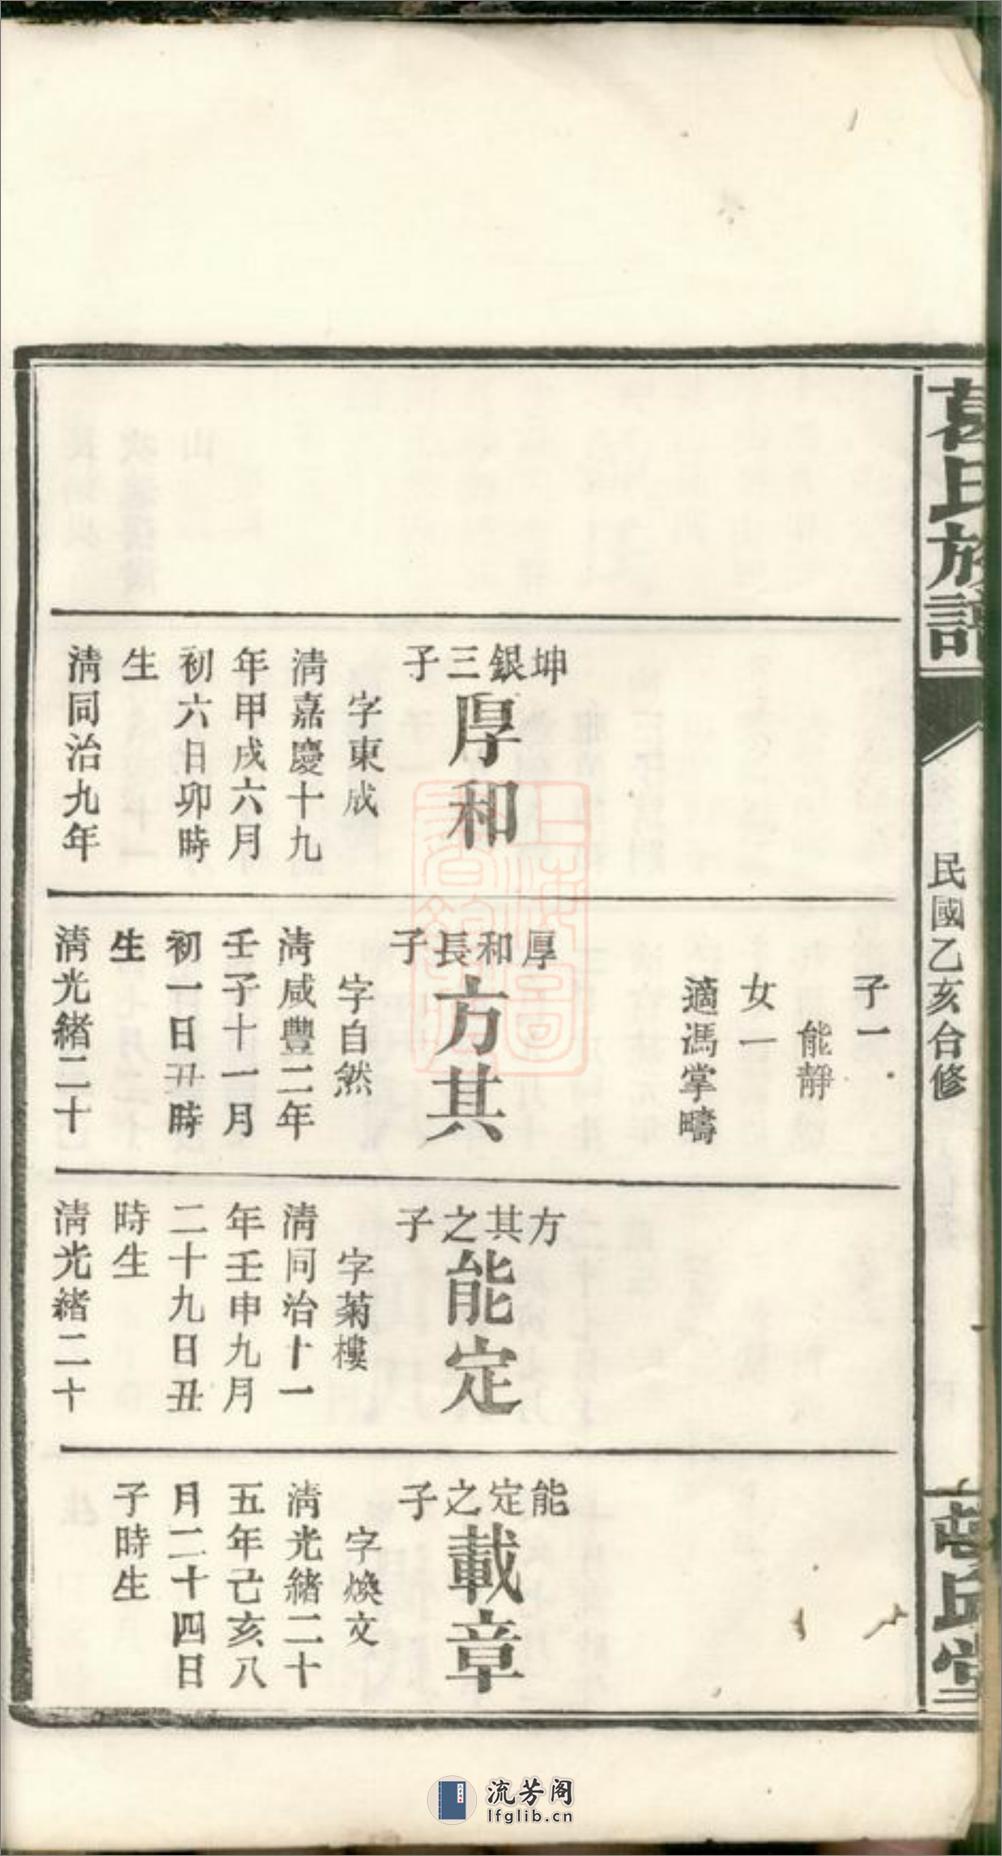 葛氏族譜
民國乙亥合修
坤銀三子
厚和
字東成
清嘉慶十九
年甲戌六月
初六日卯時
生
清同治九年
子一
能靜
女一
適馮掌疇
厚和長子
方其
字自然
清咸豐二年
壬子十一月
初一日丑時
生
清光緒二十
方其之子
能定
字菊樓
清同治十一
年壬申九月
二十九日丑
時生
清光緒二十
能定之子
載章
字煥文
清光緒二十
五年己亥八
月二十四日
子時生
流芳阁
lfglib.cn